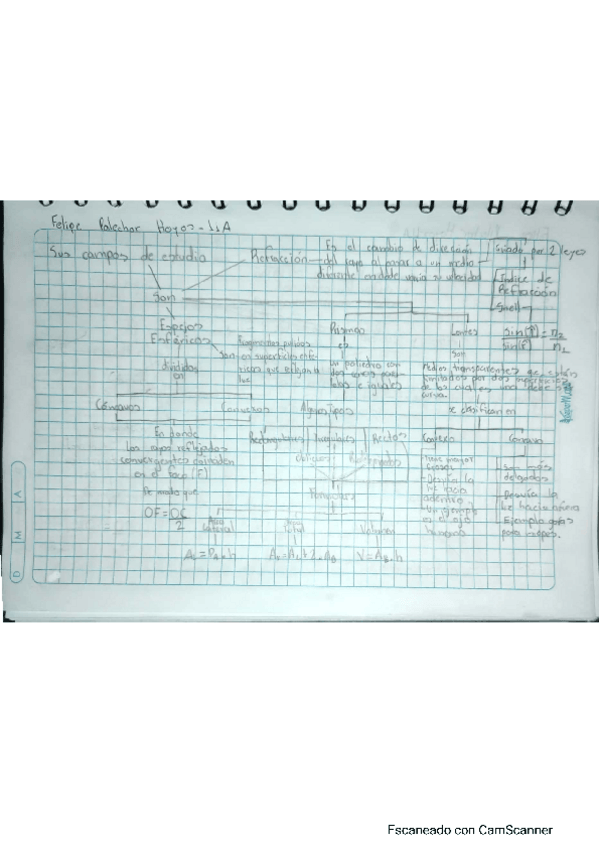 Felipe Palechor Hoyos - 11A
Sus campos de estudio
Refracción
Es el cambio de dirección
del rayo al pasar a un medio
diferente en donde varia su velocidad
Guiado por 2 leyes
Indice de
Refracción
Snell
sin(i) = n2
sin(r) n1
Son
Espejos
Esfericos
son
divididos
en
Concavos
Convexos
En donde
Los rayos reflejados
convergentes
en el foco (F)
De modo que
OF = OC
2
Prismas
es
un poliedro con
dos caras
e iguales
Algunos Tipos
Rectangulares
Irregulares
Rectos
Oblicuos
Area
lateral
Area
total
Volumen
V = AB . h
Lentes
son
Medios transparentes que están
limitados por dos superficies
de los cuales una debe ser
curva.
se clasifican en
Convexo
Concavo
- Tiene mayor
grosor
- Desvía la
luz hacia
adentro
- Un ejemplo
es el ojo
humano
- son más
delgados
- Desvía la
luz hacia afuera
- Ejemplo gafas
para miopes.
D M A
Escaneado con CamScanner